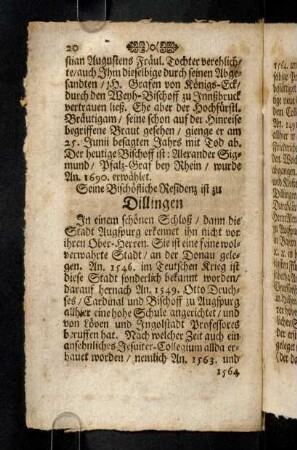 20
stian Augustens Fräul. Tochter verehlich-
te/ auch Ihm dieselbige durch seinen Abge-
sandten / H. Grafen von Königs-Eck/
durch den Weyh-Bischoff zu Innßbruck
vertrauen ließ. Ehe aber der Hochfürstl.
Bräutigam / seine schon auf der Hinreise
begriffene Braut gesehen / gienge er am
25. Junii besagten Jahrs mit Tod ab.
Der heutige Bischoff ist: Alexander Sig-
mund / Pfaltz-Graf bey Rhein / wurde
An. 1690. erwählet.
Seine Bischöfliche Residenz ist zu
Dillingen
In einem schönen Schloß / dann die
Stadt Augspurg erkennet ihn nicht vor
ihren Ober-Herren. Sie ist eine feine wol-
verwahrte Stadt / an der Donau gele-
gen. An. 1546. im Teutschen Krieg ist
diese Stadt sonderlich bekannt worden/
darauf hernach An. 1549. Otto Druch-
ses / Cardinal und Bischoff zu Augspurg
allhier eine hohe Schule angerichtet / und
von Löven und Ingolstadt Professores
beruffen hat. Nach welcher Zeit auch ein
ansehnliches Jesuiter-Collegium allda er-
bauet worden / nemlich An. 1563. und
1564